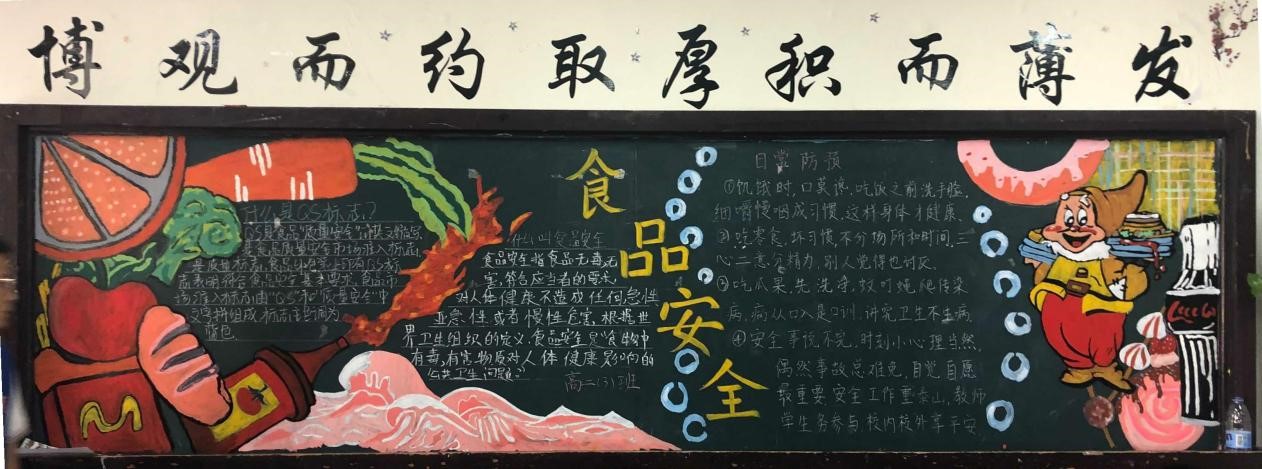 博观而约取厚积而薄发
食品安全
什么是QS标志?
QS是食品"质量安全"
是食品质量安全市场准入标志,
志表明符合食品安全基本要求,食品市
场准入标志由"QS"和"质量安全"中
文字拼组成,标志主色调为
蓝色
什么叫食品安全
食品安全指食品无毒无
害,符合应当者的需求,
对人体健康不造成任何急性
亚急性或者慢性危害,根据世
界卫生组织的定义,食品安全是"食物中
有毒,有害物质对人体健康影响的
公共卫生问题"
高二(3)班
日常防预
①饥饿时,口莫谗,吃饭之前洗手脸,
细嚼慢咽成习惯,这样身体才健康,
②吃零食,坏习惯,不分场所和时间,三
心二意分精力,别人觉得也讨厌,
③吃瓜果,先洗净,蚊叮蝇爬传染
病,病从口入是口训,讲究卫生不生病,
④安全事说不完,时刻小心理当然,
偶然事故总难免,自觉自愿
最重要,安全工作重泰山,教师
学生务参与,校内校外享平安.